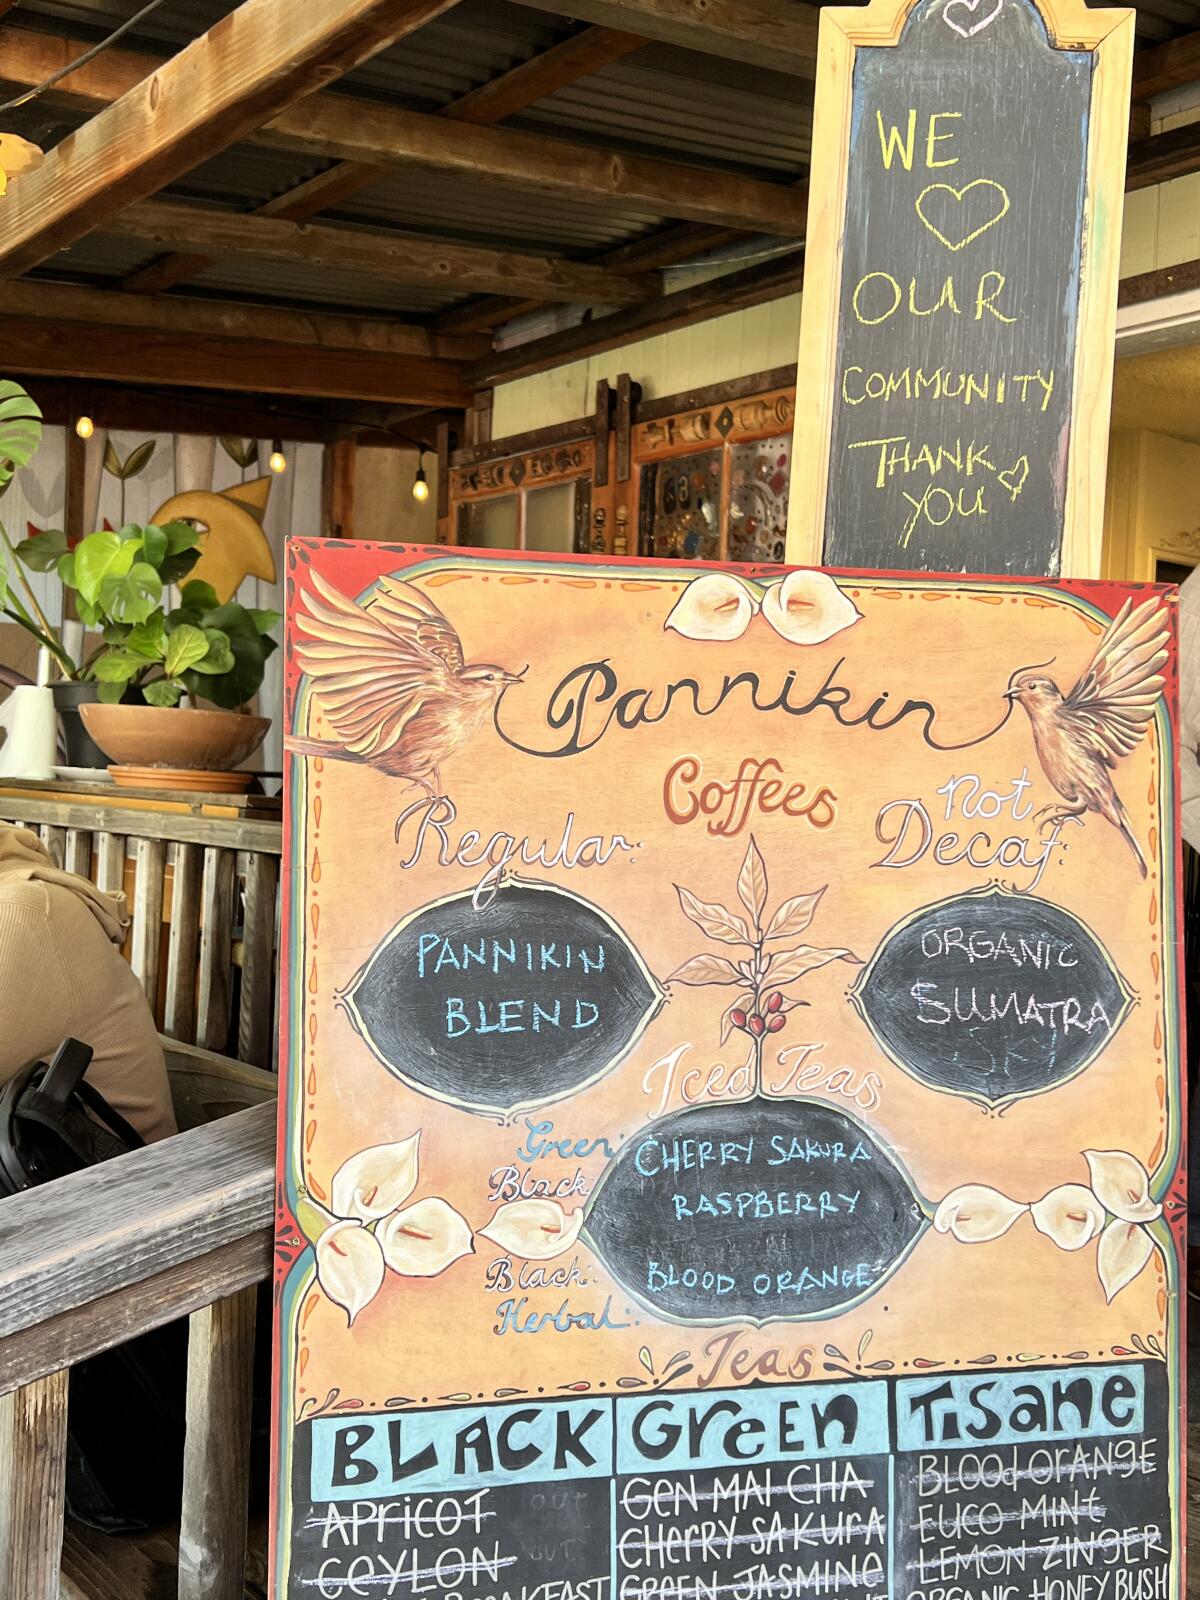 WE
OUR
COMMUNITY
THANK
YOU
Pannikin
Coffees
Regular:
Not
Decaf:
PANNIKIN
BLEND
ORGANIC
SUMATRA
Iced Teas
Green: CHERRY SAKURA
Black: RASPBERRY
Black:
BLOOD ORANGE
Herbal:
Teas
BLACK GreEN Tisane
APriCOT OUT
CEYLON OUT
GEN MAI CHA
CHErrY SAKUrA
GrEEN JASMINE
BLOOd OrANGE
EUCO MINt
LEMON ZINGER
OrGANIC HONEYBUSH